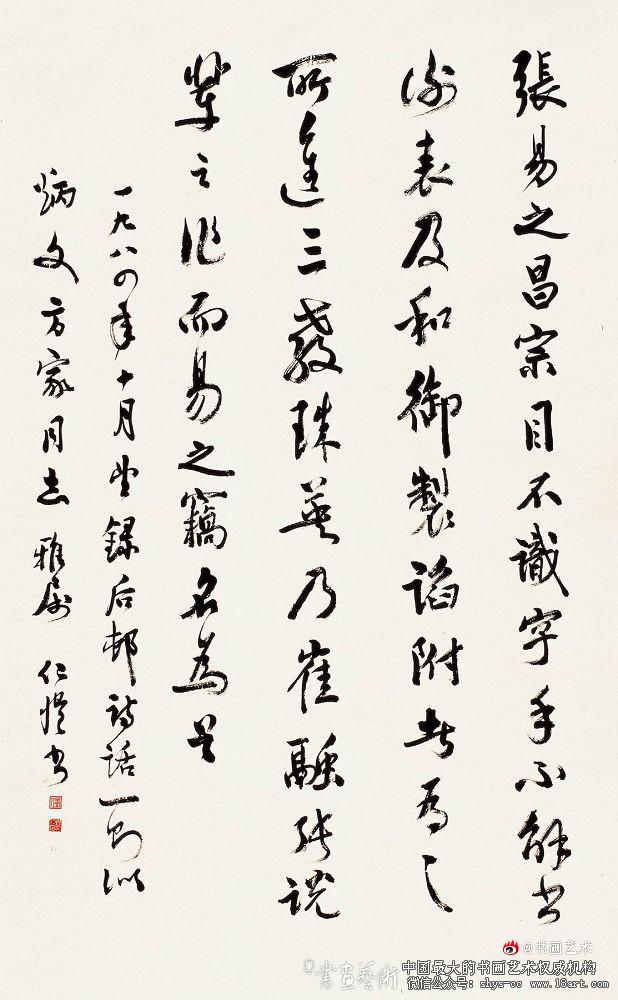 張易之昌宗目不識字手不能书
谢表及和御製諂附者为之
所進三教珠英乃崔融張说
輩之作而易之竊名為首
一九八四年十月 錄后邨詩話一則似
炳文方家同志雅属 仁愷书
@书画艺术
書画藝術
中国最大的书画艺术权威机构
微信公众号: shys-cc www.18art.com